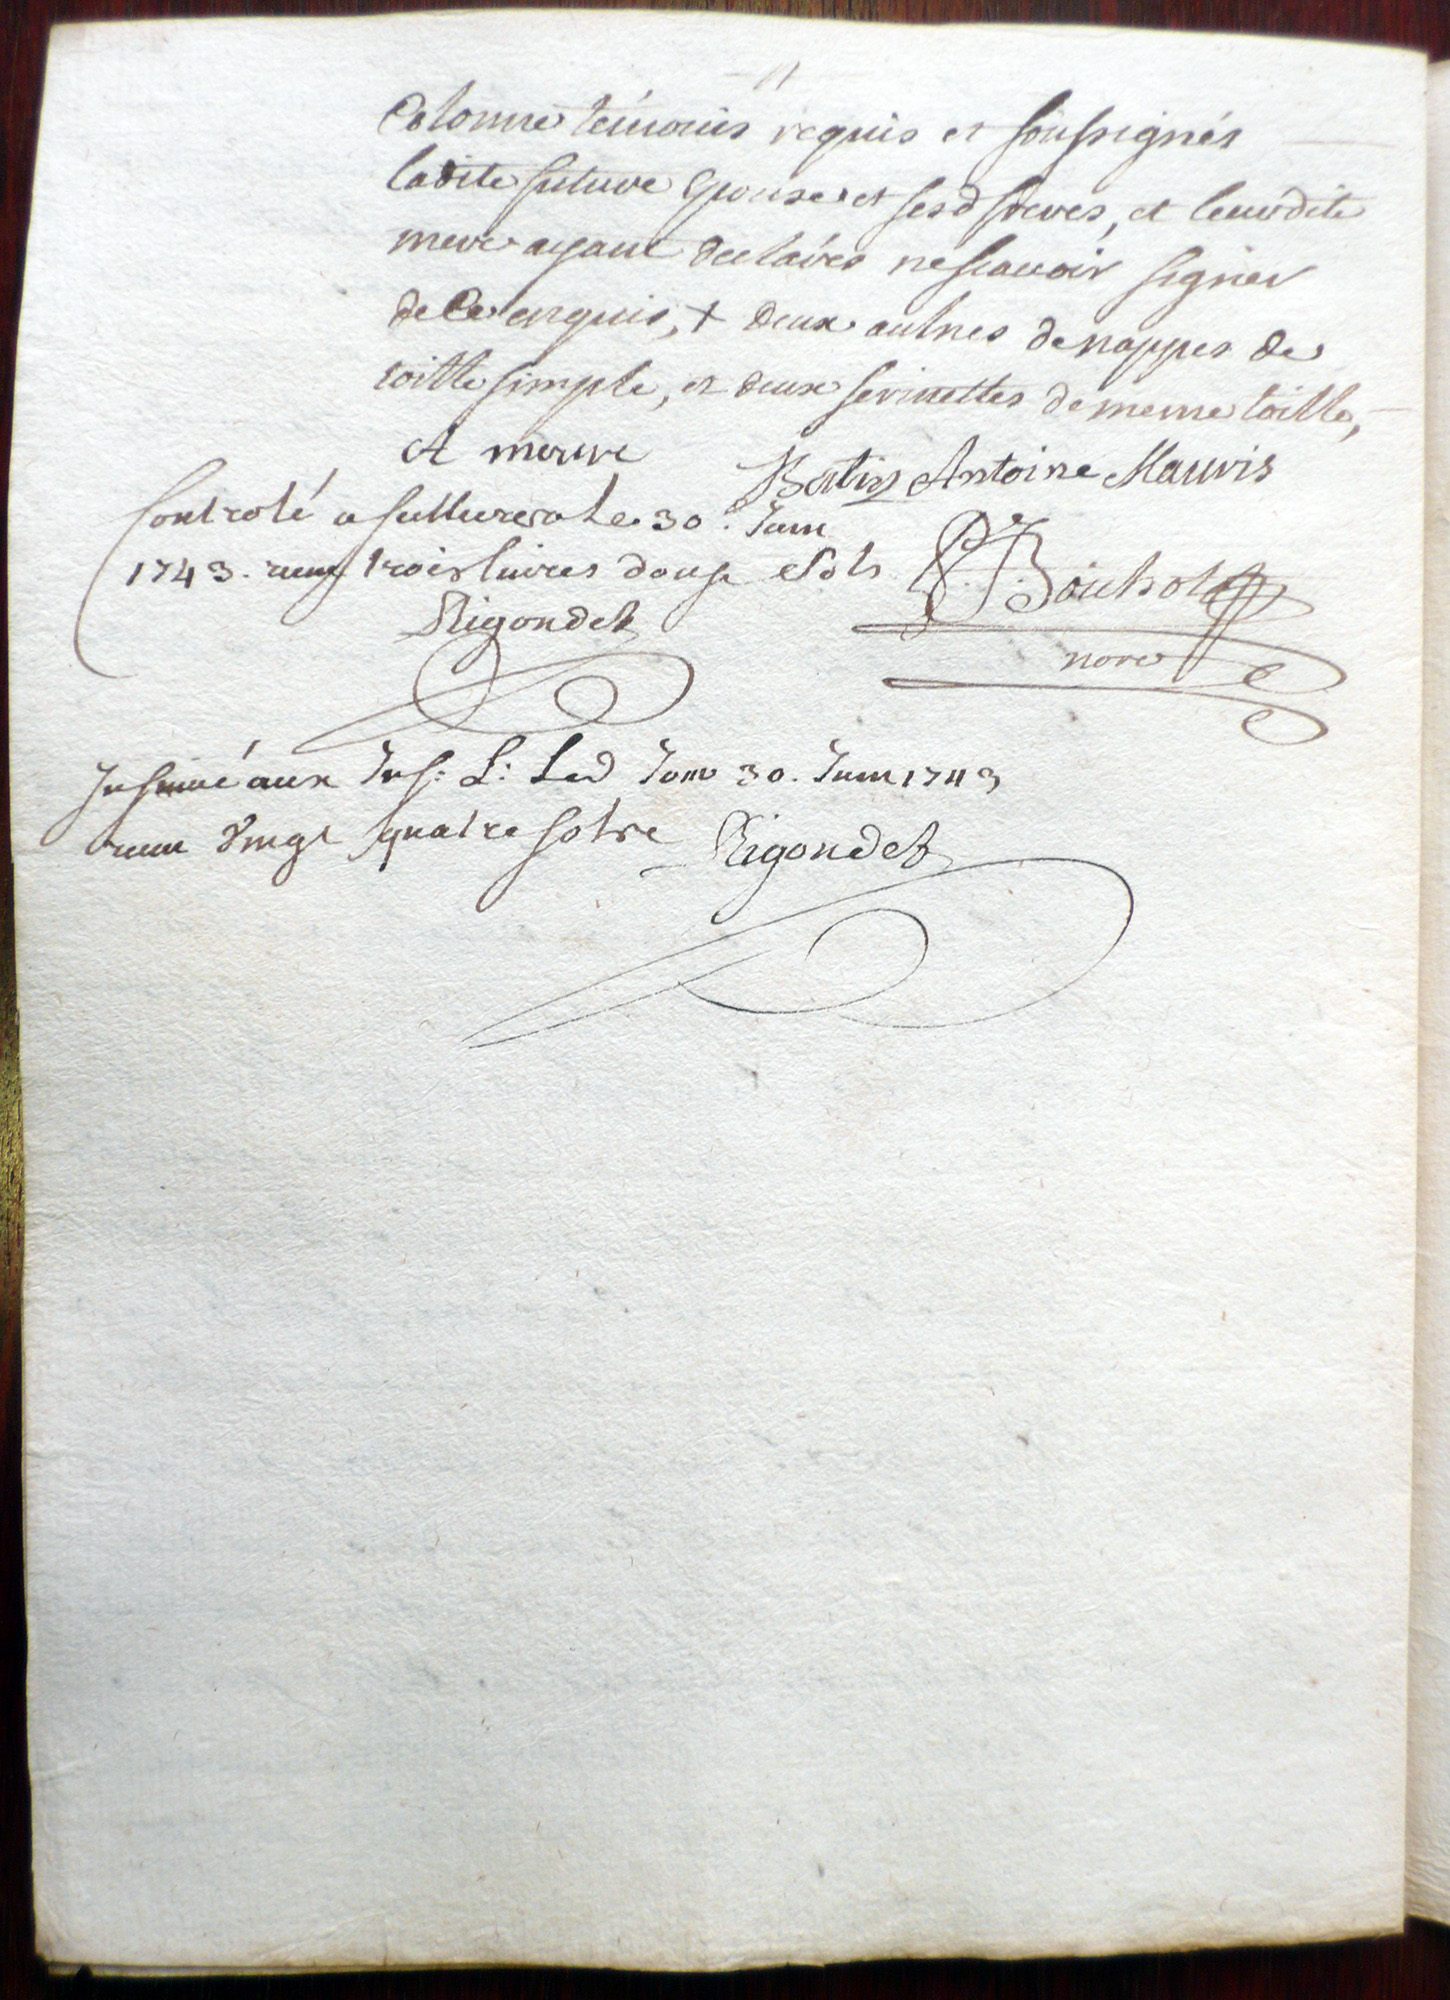 Colonne témoins requis et soussignés
ladite future Epouse et sesd freres, et leurdite
mere ayant declarés nescauoir signer
de Ce enquis, + deux aulnes de nappes de
toille simple, et deux serviettes de meme toille,
A merire Batin Antoine Mauris
Controlé a le 30. Juin
1743. recu trois liures douse sols Boichot
Rigondet nore
Insinué aux Ins: L: Led Jour 30. Juin 1743
recu vingt quatre sols Rigondet